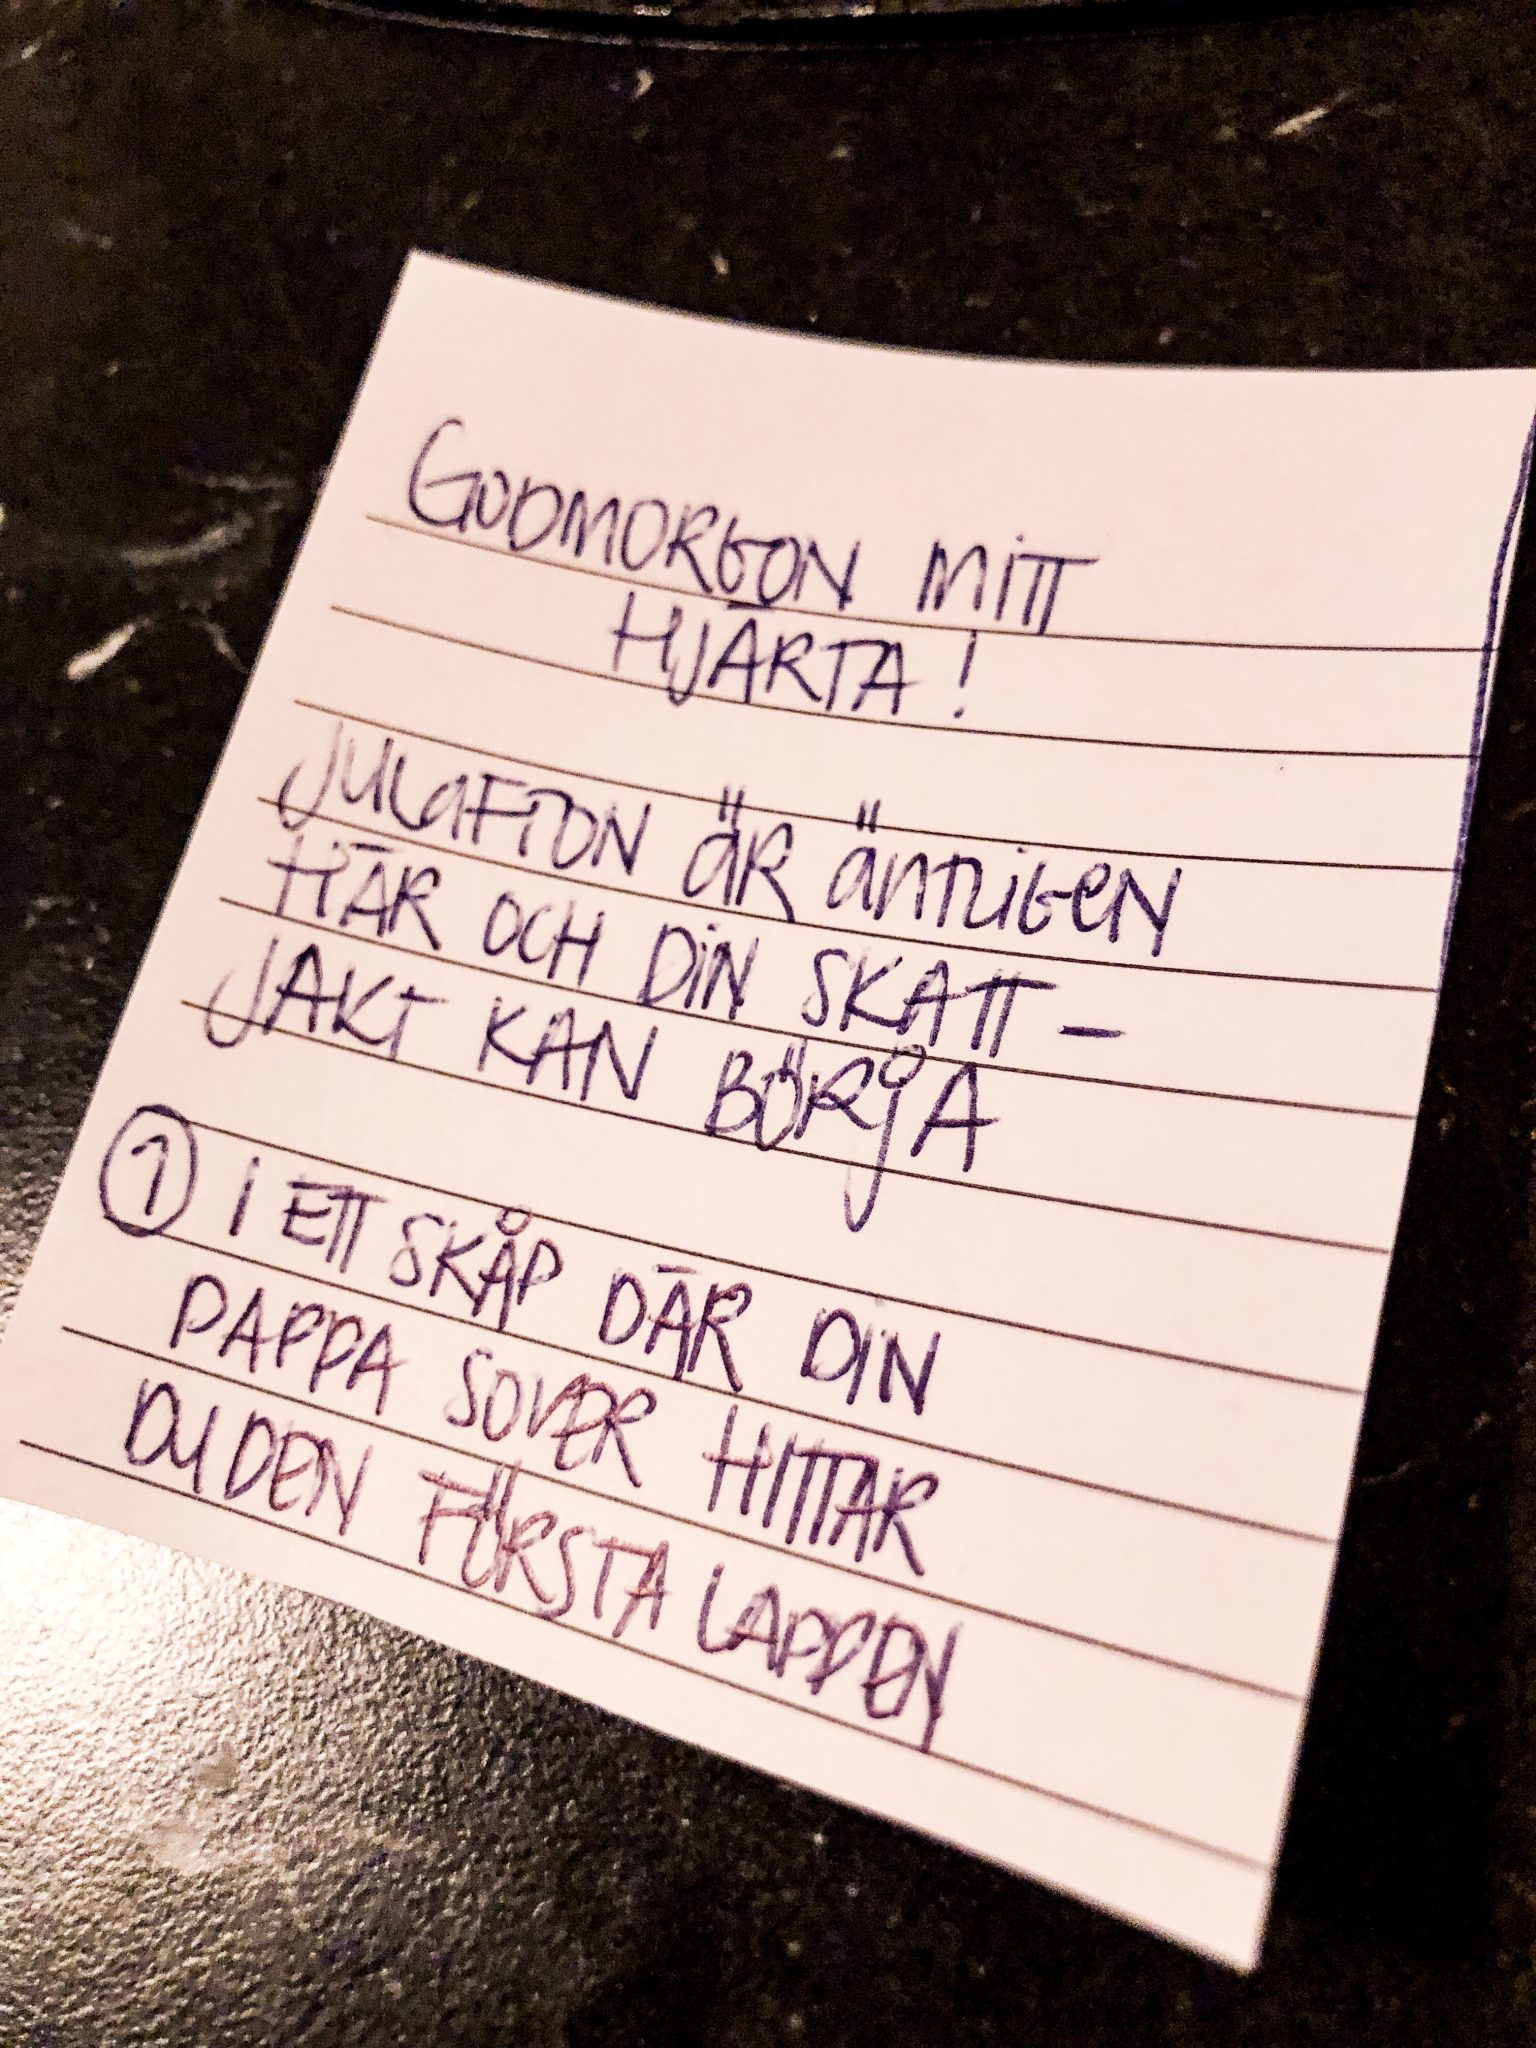 GODMORGON MITT
HJÄRTA!
JULAFTON ÄR ÄNTLIGEN
HÄR OCH DIN SKATT-
JAKT KAN BÖRJA
1 I ETT SKÅP DÄR DIN
PAPPA SOVER HITTAR
DU DEN FÖRSTA LAPPEN